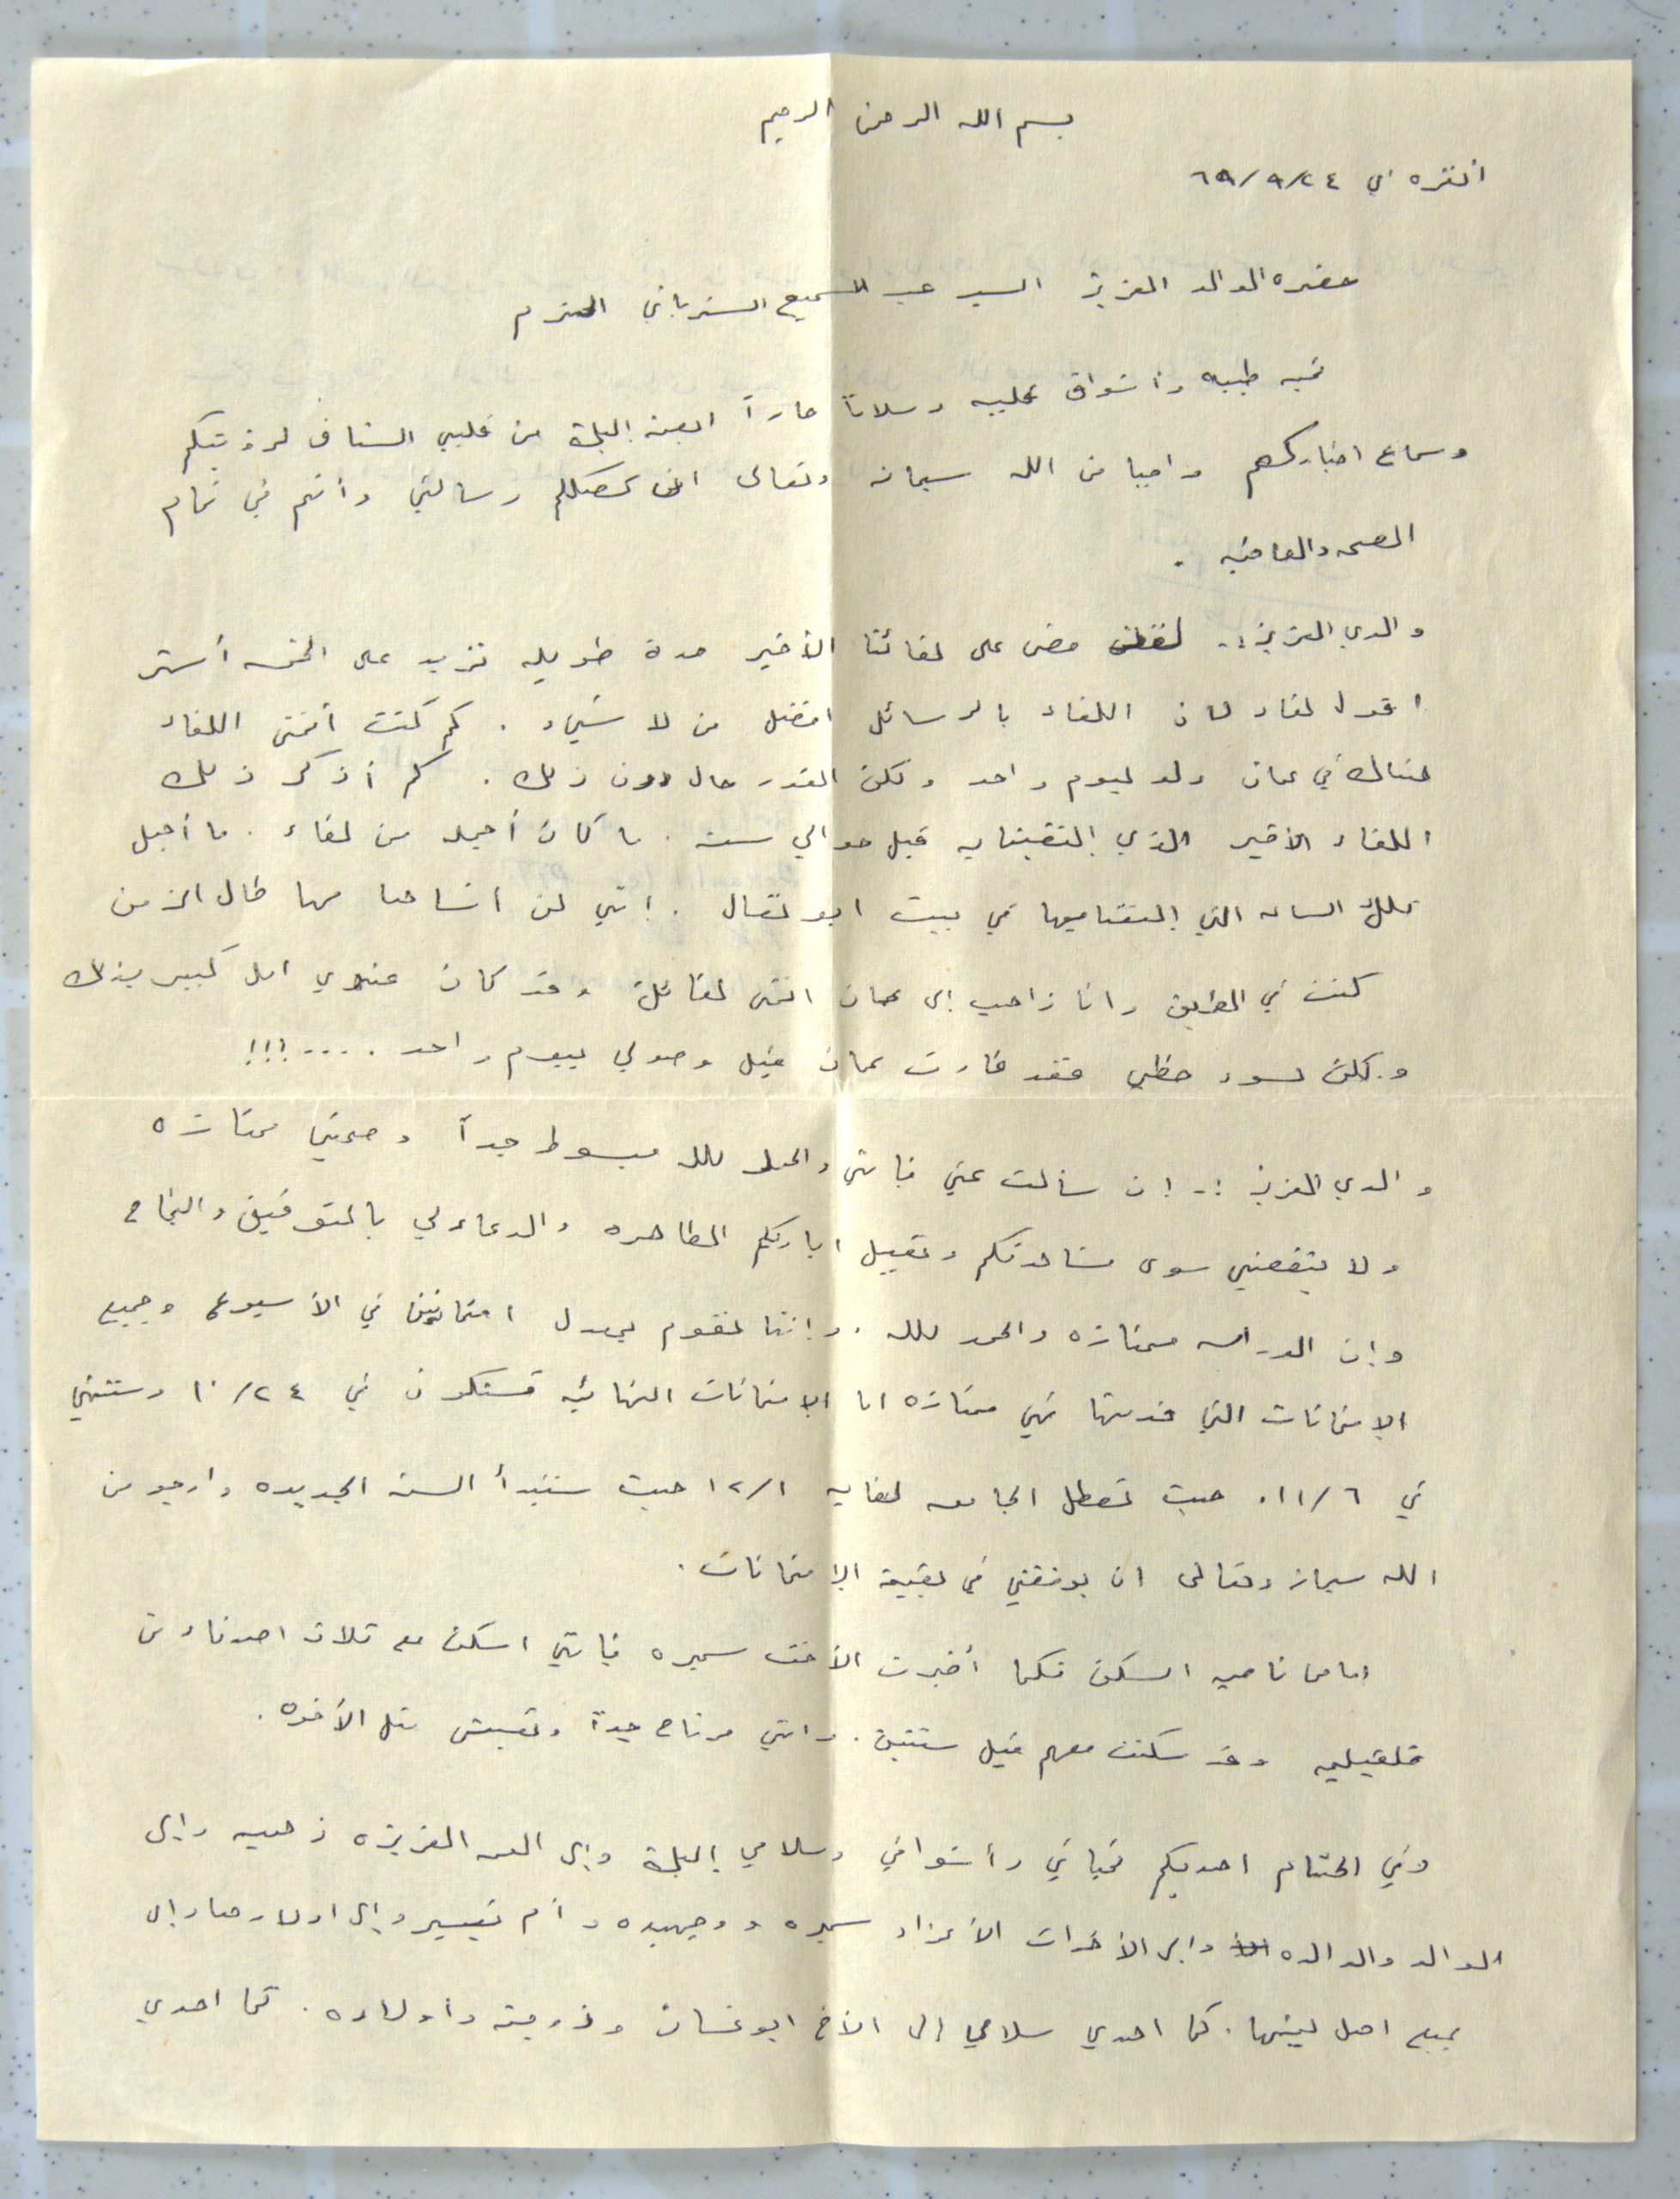 بسم الله الرحمن الرحيم
انقره في ٦٩/٩/٢٤
حضره الوالد العزيز السيد عبد السميع الشرباتي المحترم
تحيه طيبه وأشواق قلبيه وسلاماً حاراً ابعثه إليك من قلبي المشتاق لرؤيتكم
وسماع اخباركم راجيا من الله سبحانه وتعالى ان تصلكم رسالتي وأنتم في تمام
الصحه والعافيه .
والدي العزيز :- لقد مضى على لقائنا الأخير مدة طويله تزيد على الخمسه أشهر
اقول لقاء لان اللقاء بالرسائل افضل من لا شيء . كم كنت أتمنى اللقاء
هنالك في عمان ولو ليوم واحد ولكن القدر حال دون ذلك . كم أذكر ذلك
اللقاء الأخير الذي إلتقينا به قبل حوالي سنه . ما كان أجمله من لقاء . ما أجمل
تلك الساعه التي إلتقينا بها في بيت ابو نضال . إنني لن انساها مهما طال الزمن
كنت في الطريق وانا ذاهب إلى عمان اتمنى لقائك وقد كان عندي امل كبير بذلك
ولكن لسوء حظي فقد غادرت عمان قبل وصولي بيوم واحد .....!!!
والدي العزيز :- إن سألت عني فإنني والحمد لله مبسوط جداً وصحتي ممتازه
ولا ينقصني سوى مشاهدتكم وتقبيل اياديكم الطاهره والدعاء لي بالتوفيق والنجاح
وإن الدراسه ممتازه والحمد لله . وإننا نقوم بمعدل امتحانين في الأسبوع وجميع
الإمتحانات التي قدمتها فهي ممتازه اما الإمتحانات النهائيه فستكون في ١٠/٢٤ وستنتهي
في ١١/٦ . حيث تعطل الجامعه لغايه ١٢/١ حيث ستبدأ السنه الجديده وارجو من
الله سبحانه وتعالى ان يوفقني في بقية الإمتحانات .
اما من ناحيه السكن فكما أخبرت الأخت سميره فإنني اسكن مع ثلاث اصدقاء من
قلقيليه وقد سكنت معهم قبل سنتين . وانني مرتاح جداً ونعيش مثل الأخوه .
وفي الختام اهديكم تحياتي وأشواقي وسلامي إليك وإلى العمه العزيزه ذهبيه وإلى
الوالد والوالده وإلى الأخوات الأعزاء سميره ووجيهه وأم تيسير وإلى اولادها وإلى
جميع اهل بيتها . كما اهدي سلامي إلى الأخ ابو غسان وزوجته وأولاده . كما اهدي